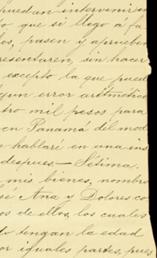 puedan intervenir en
lo que si llegó á fa
les, pasen y aprueben
resentaren, sin hacer
excepto la que pued
error aritmético
tro mil pesos para
en Panamá del mod
hablaré en una ins
despues — Sétima.
mis bienes, nombro
sé Ana y Dolores co
os de ellos, los cuales
tengan la edad
or iguales partes, pues